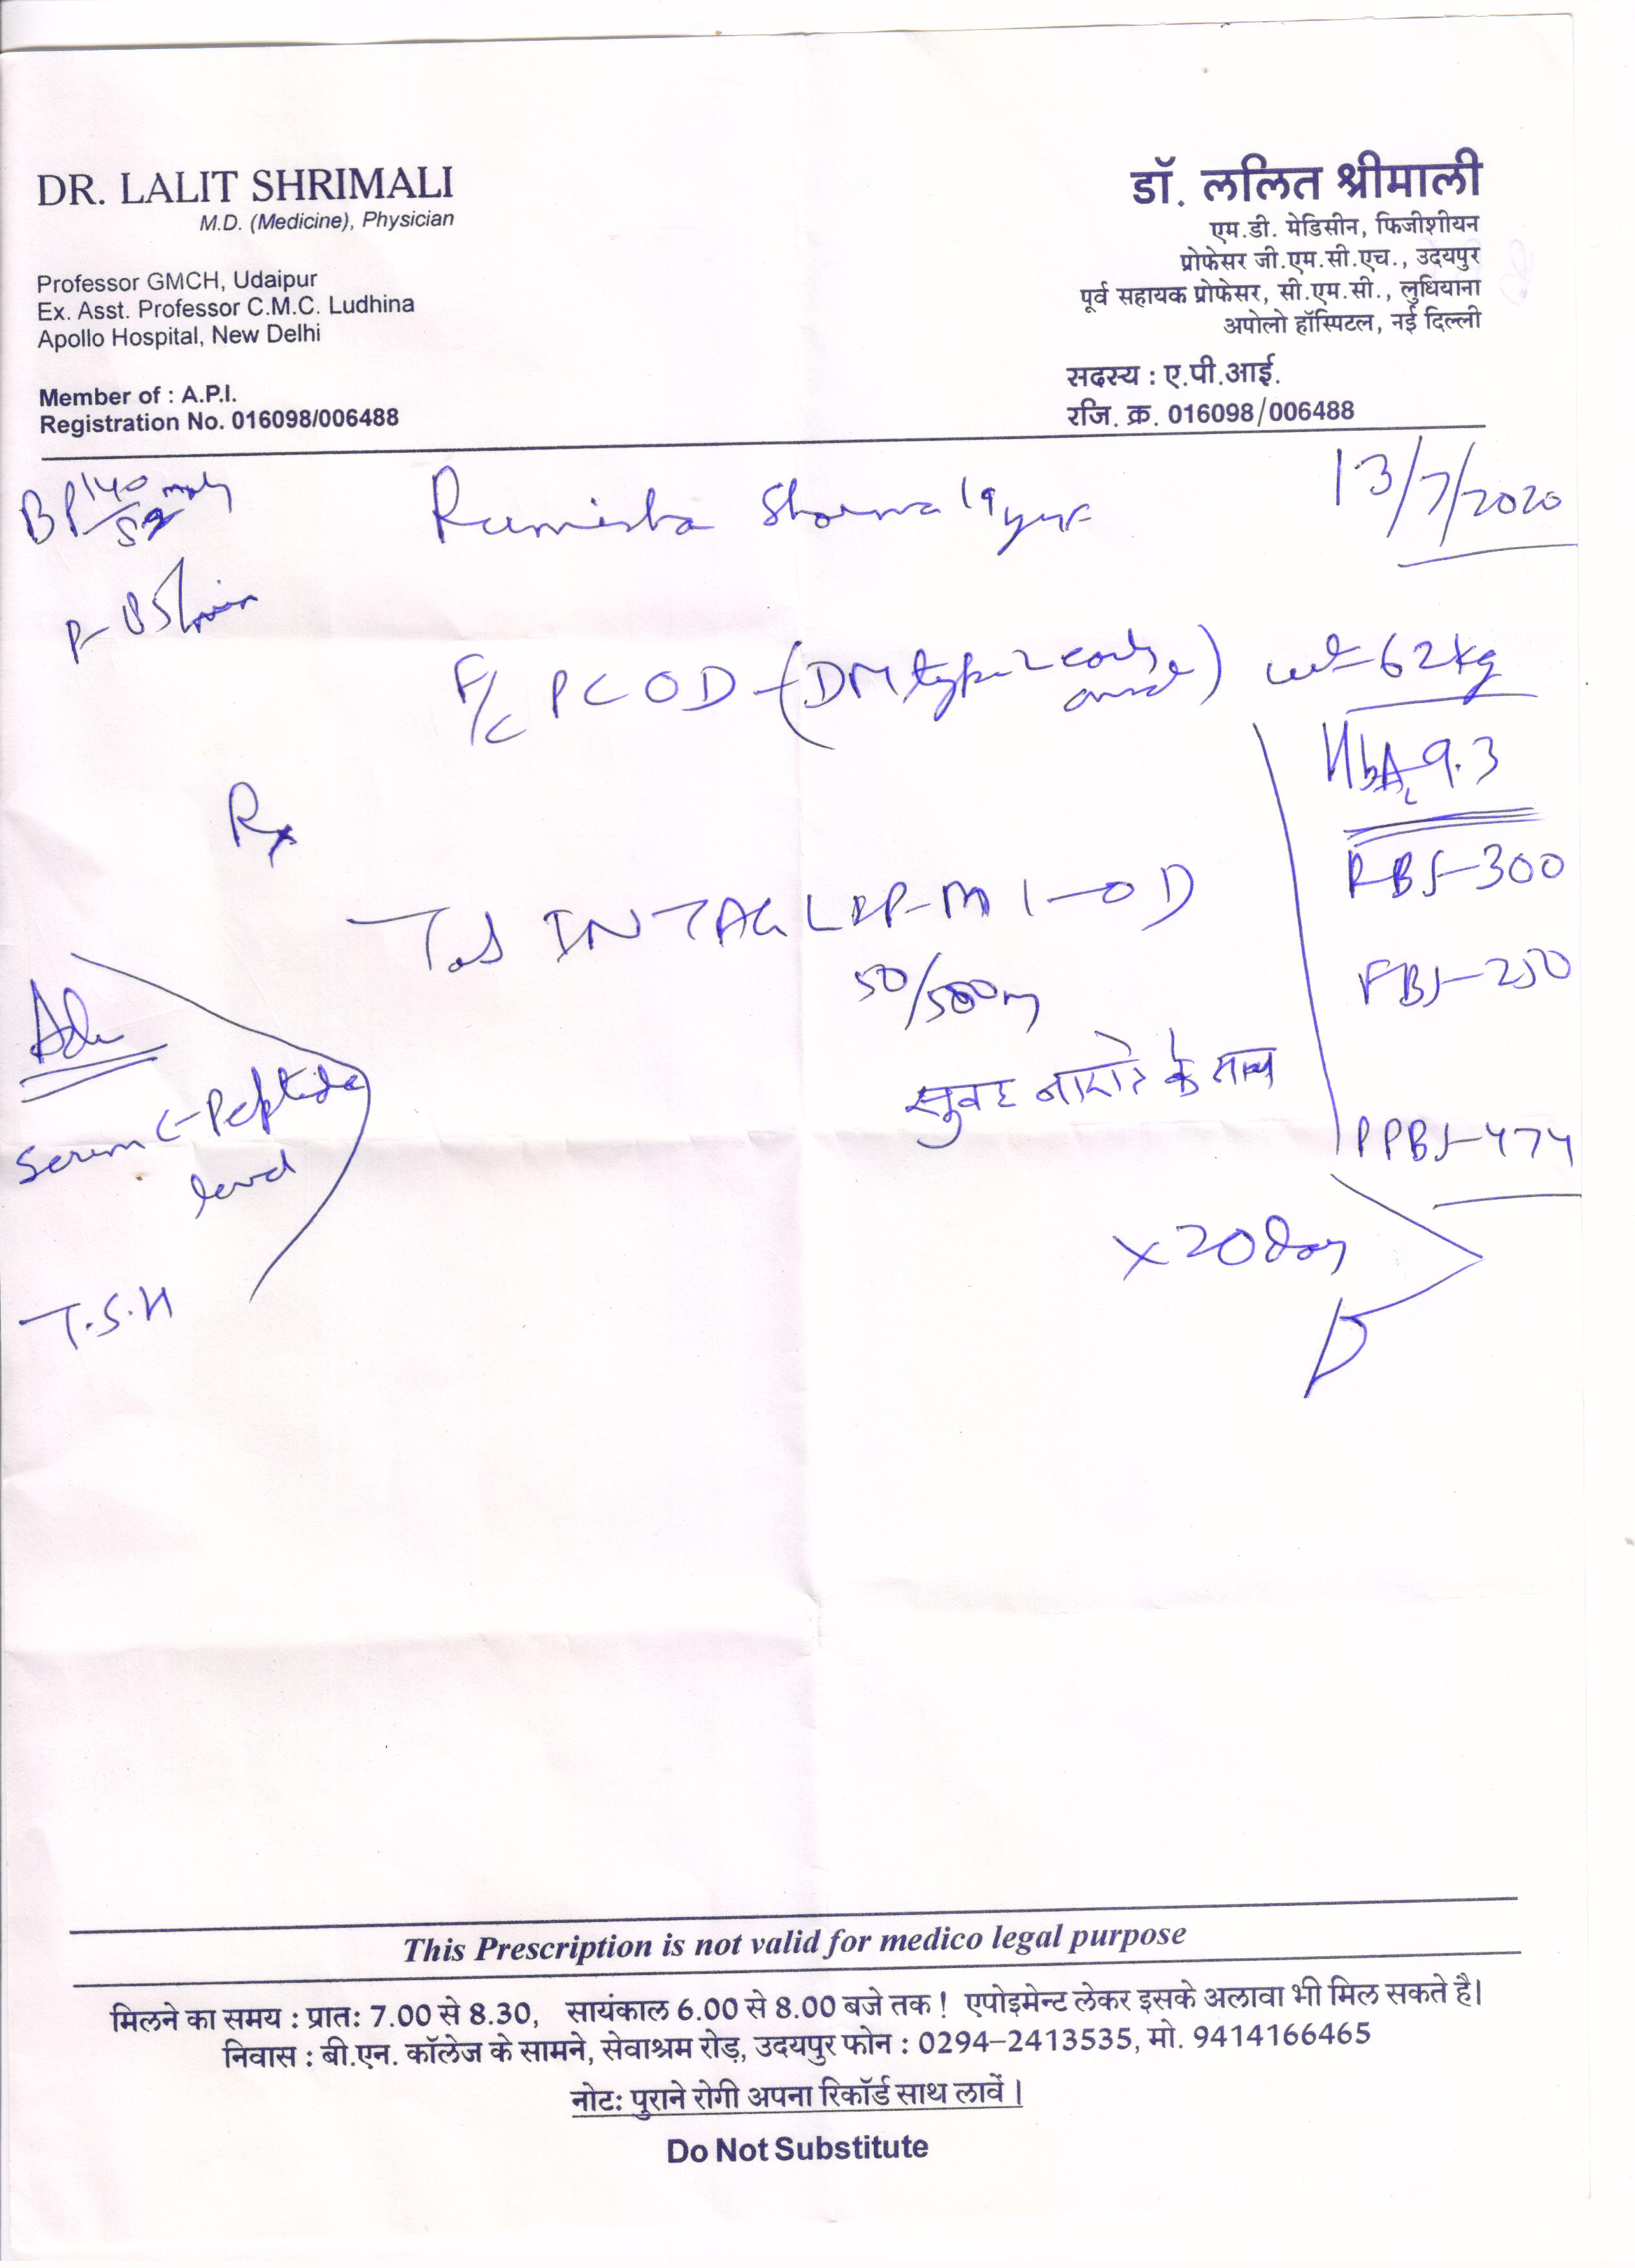 DR. LALIT SHRIMALI
M.D. (Medicine), Physician
Professor GMCH, Udaipur
Ex. Asst. Professor C.M.C. Ludhina
Apollo Hospital, New Delhi
Member of : A.P.I.
Registration No. 016098/006488
डॉ. ललित श्रीमाली
एम.डी. मेडिसीन, फिजीशीयन
प्रोफेसर जी.एम.सी.एच., उदयपुर
पूर्व सहायक प्रोफेसर, सी.एम.सी., लुधियाना
अपोलो हॉस्पिटल, नई दिल्ली
सदस्य : ए.पी.आई.
रजि. क्र. 016098/006488
BP 140
Sharma 19
13/7/2020
PCOD (DM type 2 early onset) wt 62kg
HbA 9.3
Rx
RBS-300
Tab 1-OD
50/500m
FBS-250
Adv
सुबह नाश्ते के साथ
Serum C-Peptide
level
PPBS-474
x 20 day
T.S.H
This Prescription is not valid for medico legal purpose
मिलने का समय : प्रातः 7.00 से 8.30, सायंकाल 6.00 से 8.00 बजे तक ! एपोइमेन्ट लेकर इसके अलावा भी मिल सकते है।
निवास : बी.एन. कॉलेज के सामने, सेवाश्रम रोड़, उदयपुर फोन : 0294-2413535, मो. 9414166465
नोटः पुराने रोगी अपना रिकॉर्ड साथ लावें ।
Do Not Substitute